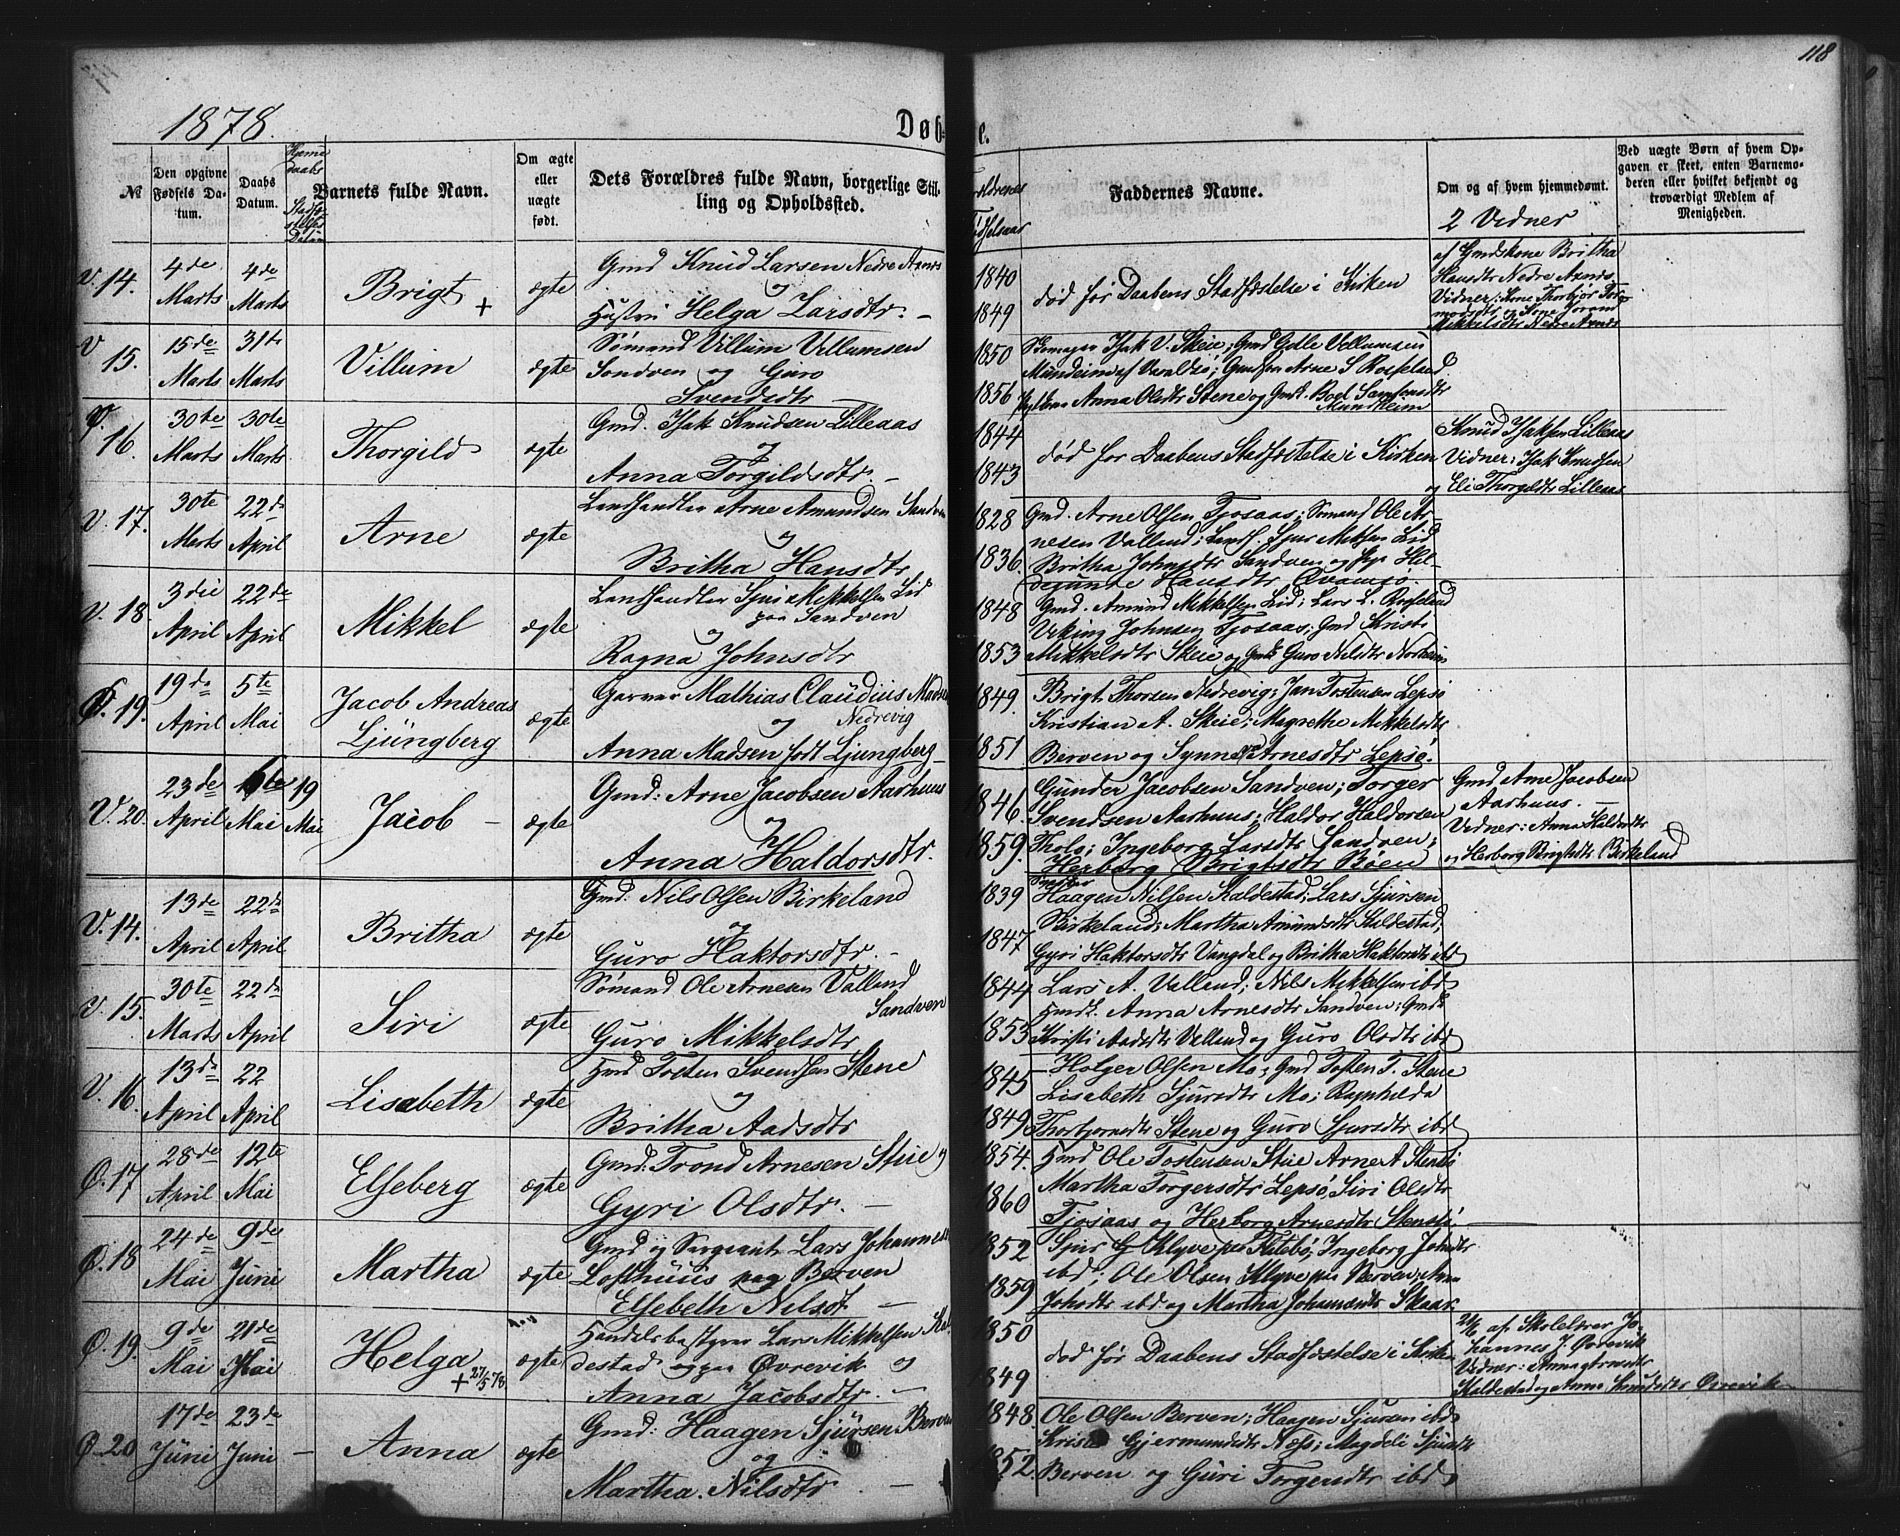 118
1878.
Døb- e.
№
Den opgivne Fødsels Datum.
Daabs Datum.
Hjemme Daabs Stadfæstelses Datum
Barnets fulde Navn.
Om ægte eller uægte født.
Dets Forældres fulde Navn, borgerlige Stilling og Opholdssted.
Fødselsaar
Faddernes Navne.
Om og af hvem hjemmedømt.
2 Vidner
Ved uægte Børn af hvem Opgaven er skeet, enten Barnemoderen eller hvilket bekjendt og troværdigt Medlem af Menigheden.
V. 14. 4de Marts 4de Marts Brigt + ægte Gmd Knud Larsen Nedre Axnes
og
Hustru Helga Larsdtr. –
1840
1849
død før Daabens Stadfæstelse i Kirken
af Gmdskone Britha
Hansdtr Nedre Axnes
Mikkelsdtr Nedre Axnes
V 15. 15de Marts 31te Marts Villum ægte Sømand Villum Villumsen
Sandven og Guro
Svendsdtr
1850
1856
Isak V. Skeie; Gmd Godle Villumsen
Anna Olsdtr Stene og
Mundheim
Ø. 16. 30te Marts 30te Marts Thorgild ægte Gmd. Isak Knudsen Lilleaas
og
Anna Torgildsdtr. –
1844
1843
død før Daabens Stadfæstelse i Kirken
Knud Isaksen Lilleaas
Vidner: Isak Knudsen
og Eli Thorgildtr Lilleaas
V. 17. 30te Marts 22de April Arne ægte Landhandler Arne Amundsen Sandven
og
Britha Hansdtr
1828
1836
Gmd. Arne Olsen Tjosaas; Sømand Ole Ar-
nesen Valland; Landh. Sjur Miksen Lid
Britha Johnsdtr Sandven og Hil-
degunte Hansdtr
V. 18. 3die April 22de April Mikkel ægte Landhandler Sjur Mikkelsen Lid
paa Sandven
og
Ragna Johnsdtr
1848
1853
Gmd. Amund Mikkelsen Lid; Lars L. Rosseland
Viking Johnsen Tjosaas; Gmd Kristi
Mikkelsdtr Skeie og Guro Nilsdtr Norheim
Ø. 19. 19de April 5te Mai Jacob Andreas
Ljüngberg ægte Garver Mathias Claudius Madsen
og Nedrevig
Anna Madsen født Ljungberg
1849.
1851
Brigt Thorsen Nedrevig; Jan Tostensen Lepsø
Kristian A. Skeie; Magrethe Mikkelsdtr
Berven og Synneva Arnesdtr Lepsø.
V. 20. 23de April Mai 19 Mai Jacob – ægte Gmd: Arne Jacobsen Aarhuus
og
Anna Haldorsdtr.
1846.
1859.
Gunter Jacobsen Sandven; Torger
Svendsen Aarhuus; Haldor Haldorsen
Tholo; Ingeborg Larsdtr Sandven;
Herborg Brigtsdtr Bøen
Gmd Arne Jacobsen
Aarhuus. –
Vidner: Anna Haldordtr
og Herborg Brigtsdtr Birkeland
V. 14. 13de April 22de April Britha ægte Gmd: Nils Olsen Birkeland
og
Guro Haktorsdtr. –
1839
1847
Haagen Nilsen Kaldestad; Lars Sjursen
Birkeland; Martha Amundsdtr Kaldestad;
Gyri Haktorsdtr Vangdal og Britha Haktorsdtr ibd
V. 15. 30te Marts 22de April Siri ægte Sømand Ole Arnesen Valland
Sandven
Guro Mikkelsdtr
1844
1853
Lars A. Valland; Nils Mikkelsen ibd
Anna Arnesdtr Sandven;
Kristi Aadsdtr Valland og Guro Olsdtr ibd
V. 16. 13de April 22 April Lisabeth ægte Gmd Tosten Svendsen Stene
og
Britha Aadsdtr
1845
1849
Holger Olsen Mo; Gmd Tosten T. Stene
Lisabeth Sjursdtr Mo; Ragnhilda
Thorbjørnsdtr Stene og Guro Sjursdtr ibd
Ø. 17 28de April 12te Mai Elseberg ægte Gmd: Trond Arnesen Skeie og
Gyri Olsdtr. –
1854.
1860
Gmd Ole Tostensen Skeie Arne A Stensø
Martha Torgersdtr Lepsø, Siri Olsdtr
Tjosaas og Herborg Arnesdtr Stensø.
Ø. 18 24de Mai 9de Juni Martha ægte Gmd og Sergeant Lars Johannesen
Lofthuus paa Berven
Elsebeth Nilsdtr –
1852
1859
Sjur G Klyve paa Ingeborg Johsdtr
ibd; Ole Olsen Klyve paa Berven;
Johsdtr ibd og Martha Johannesdtr Skaar
Ø. 19. 9de Mai 21de Mai Helga + 27/5 78 ægte Handelsbestyrer Lars Mikkelsen Kal-
destad paa Øvrevik og
Anna Jacobsdtr. –
1850
1849
død før Daabens Stadfæstelse i Kirken
af Skolelærer Jo-
hannes J. Øvrevik
Vidner: Anna Arnesdtr
Kaldestad og Anna Knudsdtr Øvrevik
Ø. 20 17de Juni 23de Juni – Anna ægte Gmd: Haagen Sjursen Berven
og
Martha Nilsdtr –
1848
1852.
Ole Olsen Berven; Haagen Sjursen ibd
Gjermundsdtr Næs; Magdeli Sjursdtr
Berven og Guri Torgersdtr ibd